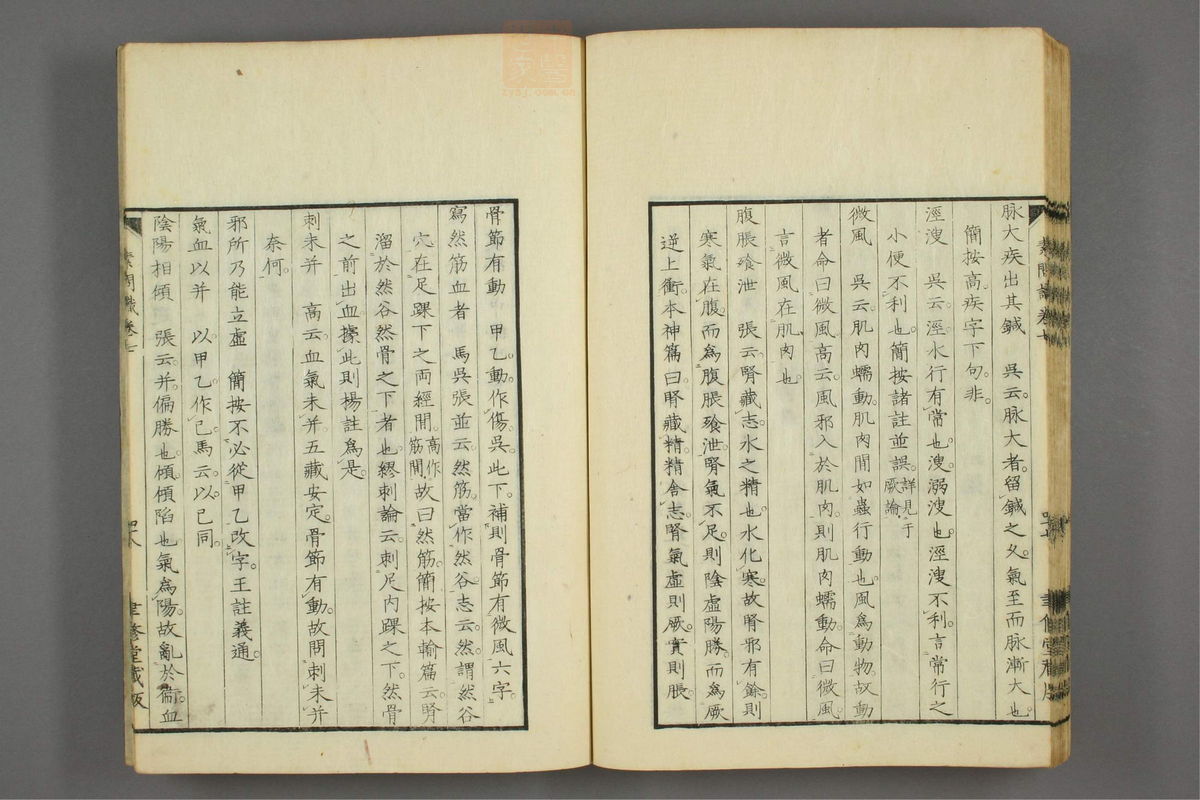 脉大疾出其鍼　吳云。脉大者。留鍼之久。氣至而脉漸大也
簡按高。疾字下句。非
涇溲　吳云。涇水行有常也。溲。溺溲也。涇溲不利。言常行之
小便不利也。簡按諸註並誤。詳見于厥論
微風　吳云。肌肉蠕動。肌肉間如蟲行動也。風爲動物。故動
者命曰微風。高云。風邪入於肌肉。則肌肉蠕動。命曰微風。
言微風在肌肉也
腹脹飧泄　張云。腎藏志。水之精也。水化寒。故腎邪有餘。則
寒氣在腹。而爲腹脹飧泄。腎氣不足。則陰虛陽勝。而爲厥
逆上衝。本神篇曰。腎藏精。精舍志。腎氣虛則厥。實則脹。
骨節有動　甲乙。動。作傷。吳。此下。補則骨節有微風六字。
寫然筋血者　馬吳張並云。然筋。當作然谷。志云。然。謂然谷
穴。在足踝下之兩經間。高作筋間。故曰然筋。簡按本輸篇云。腎
溜於然谷。然骨之下者也。繆刺論云。刺足内踝之下。然骨
之前出血。據此則楊註爲是
刺未并　高云。血氣未并。五藏安定。骨節有動。故問刺未并
奈何。
邪所乃能立虛　簡按不必從甲乙改字。王註義通。
氣血以并　以。甲乙。作已。馬云。以。已同。
陰陽相傾　張云。并。偏勝也。傾。傾陷也。氣爲陽。故亂於衞。血
素問識卷七
聿修堂藏版